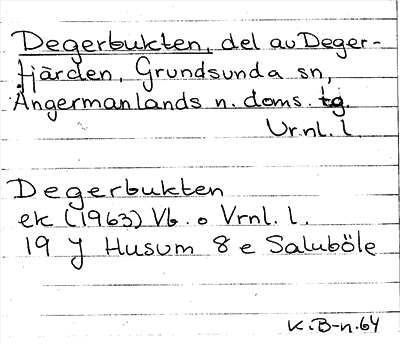 Degerbukten, del av Deger-
fjärden, Grundsunda sn,
Ångermanlands n. doms. tg.
Vr.nl. l
Degerbukten
ek (1963) Vb. o Vrnl. l.
19 J Husum 8 e Saluböle
K.B-n.64